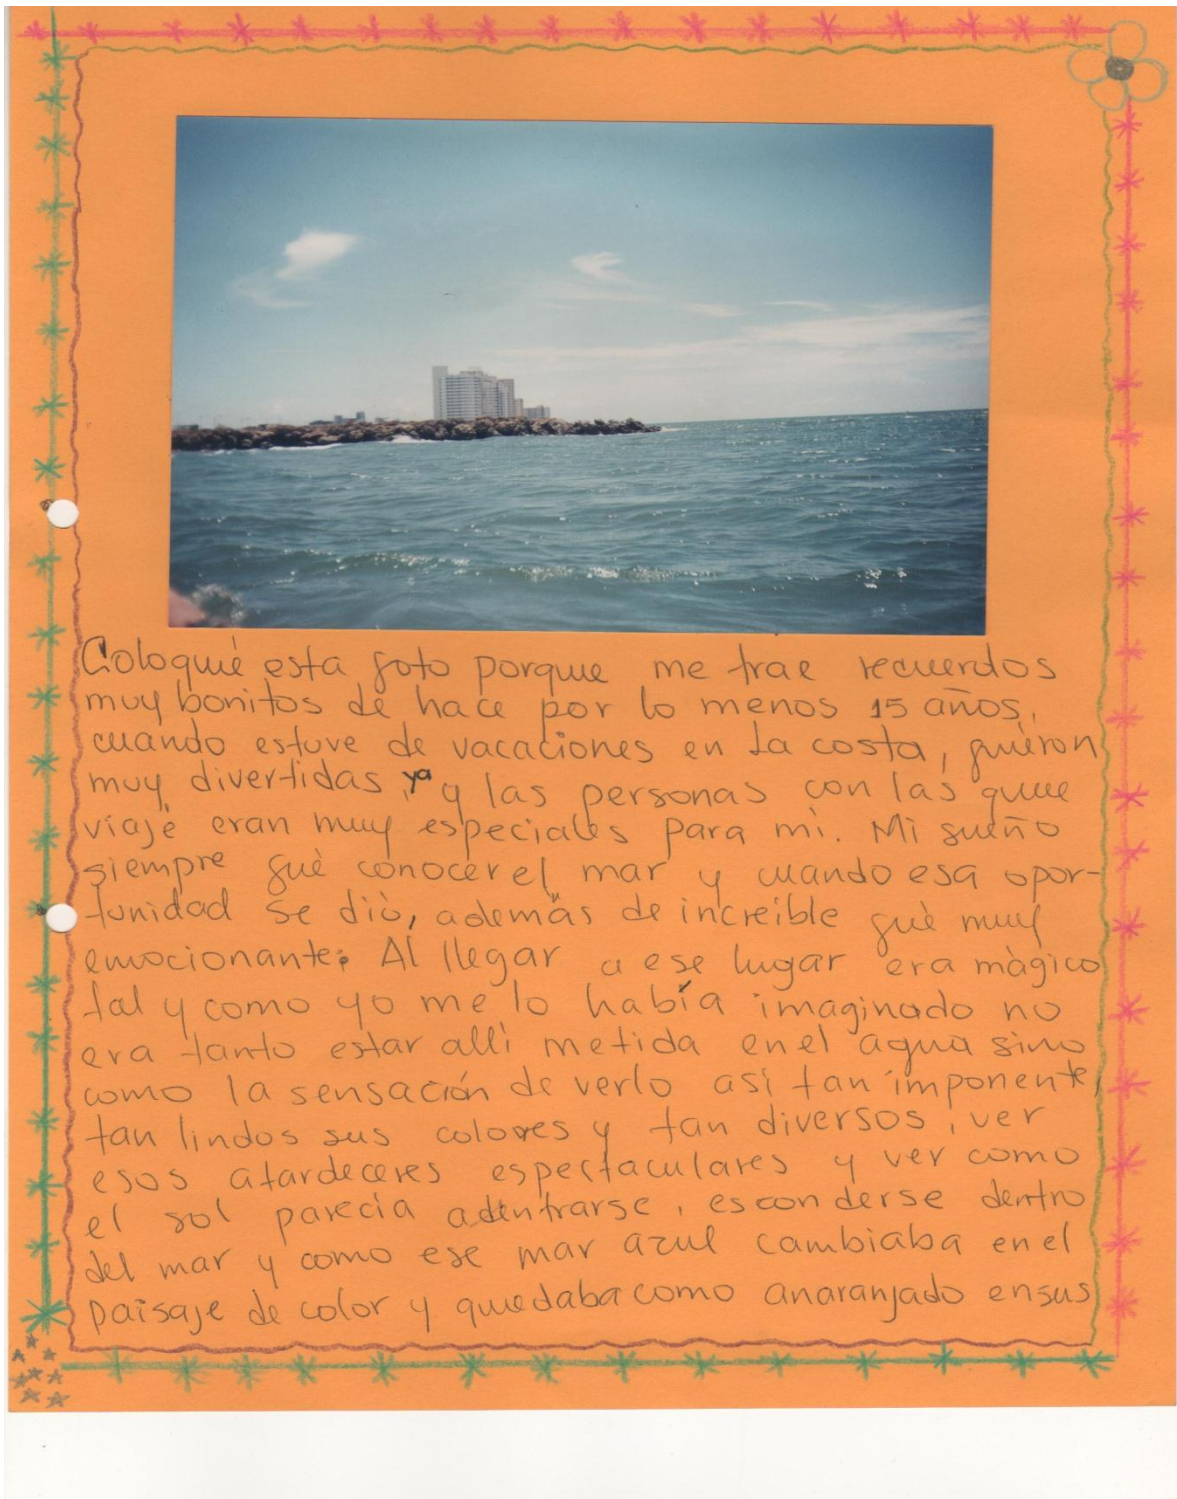 Coloqué esta foto porque me trae recuerdos
muy bonitos de hace por lo menos 15 años,
cuando estuve de vacaciones en la costa, fuéron
muy divertidas, ya y las personas con las que
viajé eran muy especiales para mi. Mi sueño
siempre fué conocer el mar y cuando esa opor-
tunidad se dió, además de increíble fué muy
emocionante. Al llegar a ese lugar era màgico
tal y como yo me lo había imaginado no
era tanto estar allí metida en el agua sino
como la sensación de verlo así tan imponente,
tan lindos sus colores y tan diversos, ver
esos atardeceres espectaculares y ver como
el sol parecía adentrarse, esconderse dentro
del mar y como ese mar azul cambiaba en el
paisaje de color y quedaba como anaranjado en sus